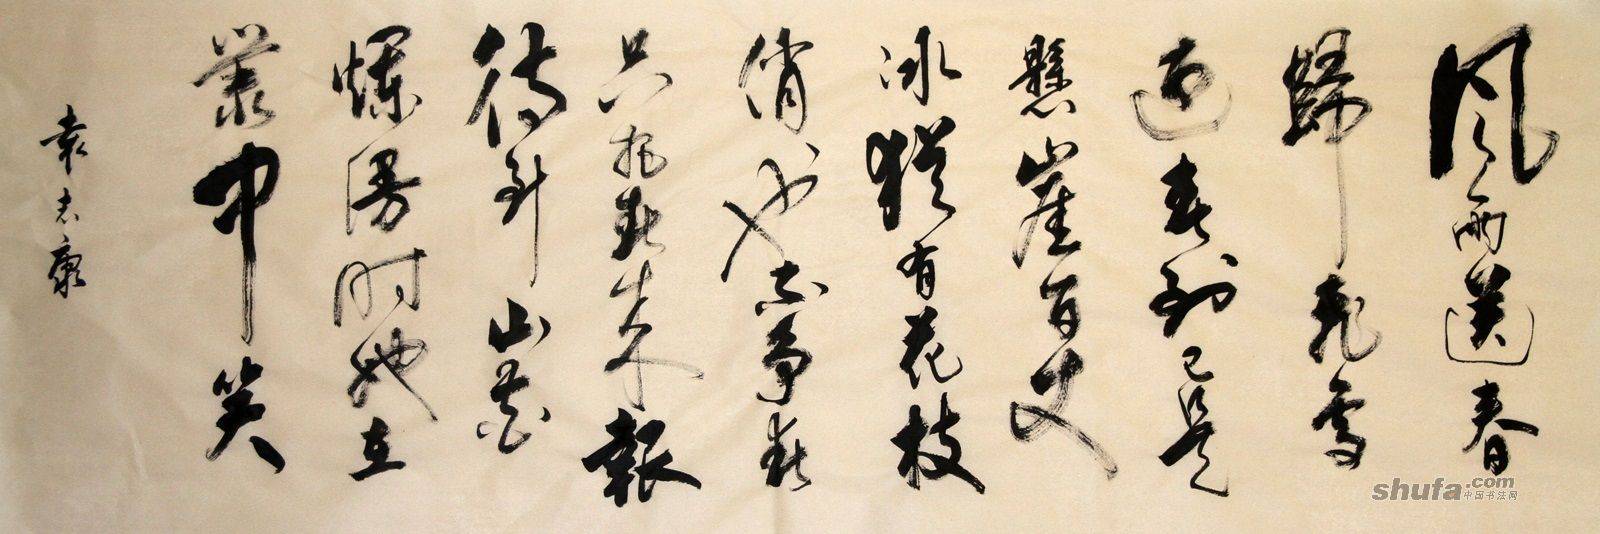 风雨送春
歸飛雪
迎春到已是
懸崖百丈
冰犹有花枝
俏也不争春
只把春来報
待到山花
爛漫时她在
叢中笑
袁志康
shufa.com
中国书法网